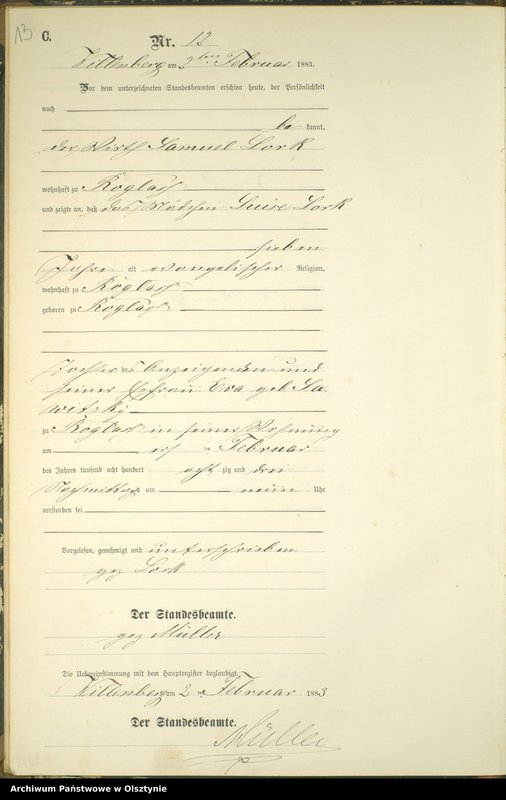 13
C.
Nr. 12
Wittenberg am 2ten Februar 1883.
Vor dem unterzeichneten Standesbeamten erschien heute, der Persönlichkeit
nach
be kannt,
der Wirth Samuel Lork
wohnhaft zu
und zeigte an, daß das Mädchen Luise Lork
sieben
Jahre alt evangelischer Religion,
wohnhaft zu
geboren zu
Tochter des Anzeigenden und
seiner Ehefrau Eva geb. Sa-
witzky
zu in seiner Wohnung
am ersten Februar
des Jahres tausend acht hundert acht zig und drei
Nachmittags um neun Uhr
verstorben sei
Vorgelesen, genehmigt und unterschrieben
gez Lork
Der Standesbeamte.
gez Müller
Die Uebereinstimmung mit dem Hauptregister beglaubigt
Wittenberg am 2 ten Februar 1883
Der Standesbeamte.
Müller
Archiwum Państwowe w Olsztynie